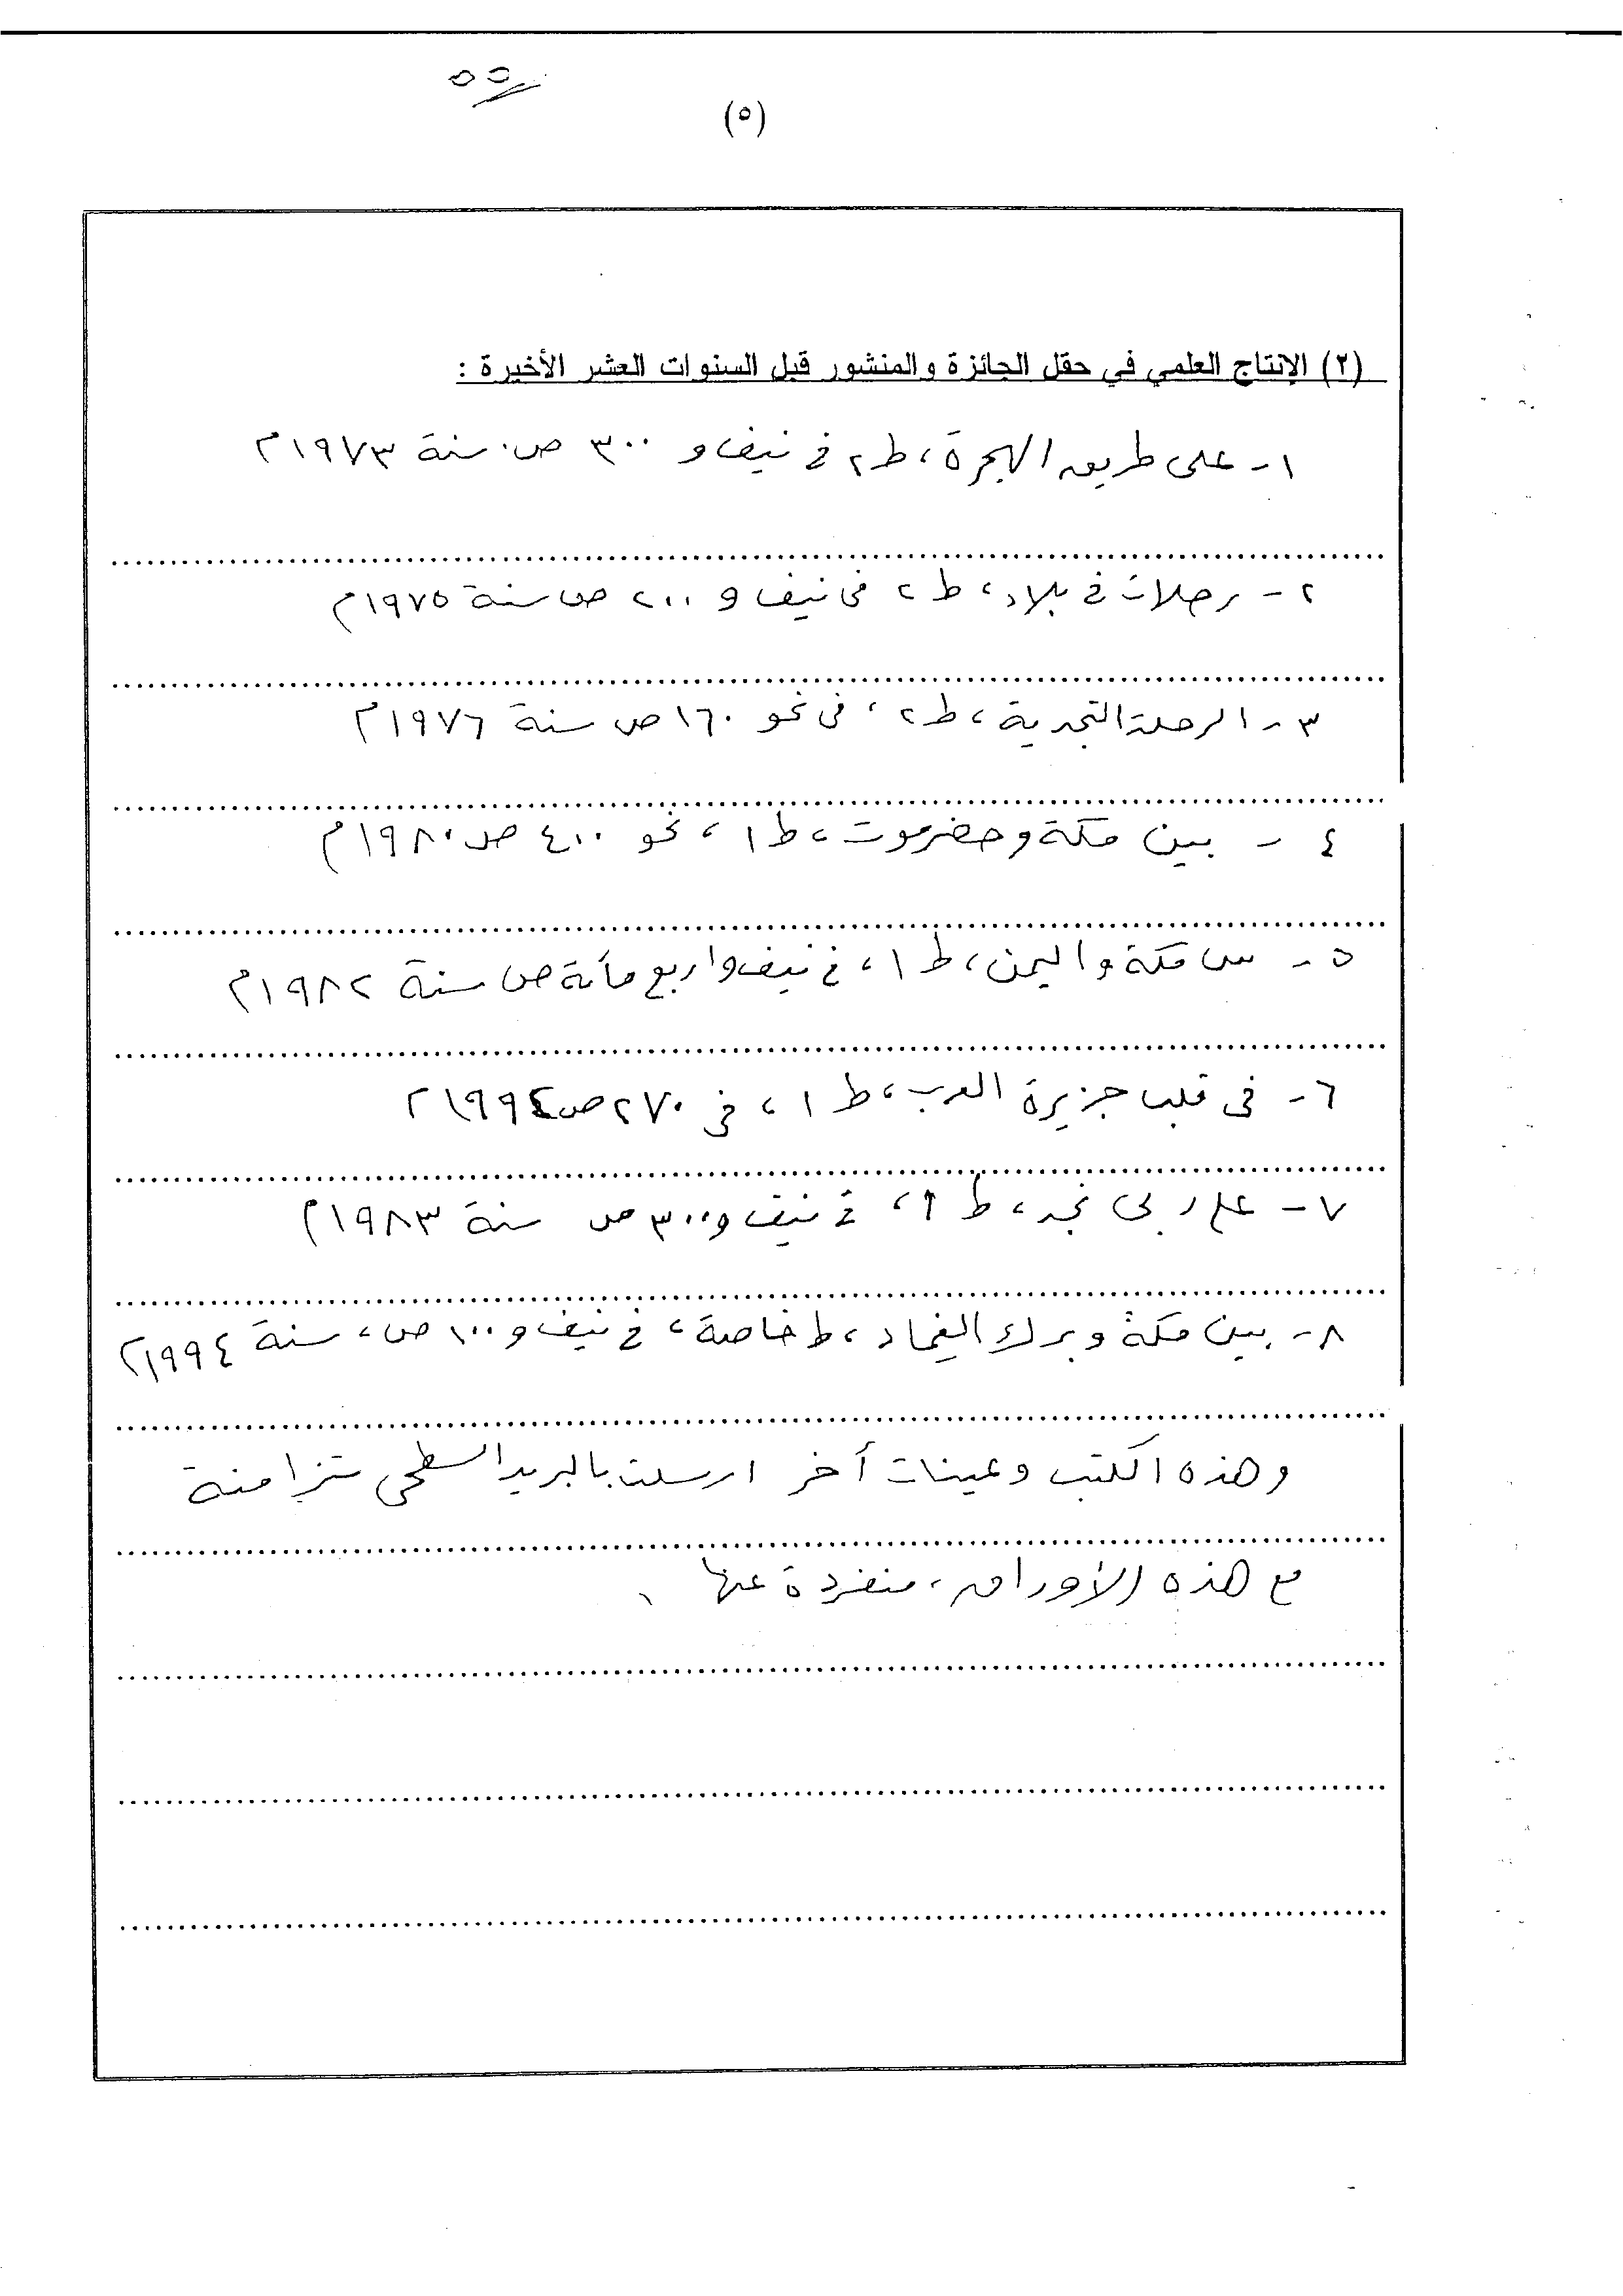 (٥)
(٢) الإنتاج العلمي في حقل الجائزة والمنشور قبل السنوات العشر الأخيرة :
١- على طريق الهجرة، ط٢ في نيف و ٣٠٠ ص. سنة ١٩٧٣م
٢- رحلات في بلاد، ط٢ في نيف و ٢٠٠ ص سنة ١٩٧٥م
٣- الرحلة النجدية، ط٢، في نحو ١٦٠ ص سنة ١٩٧٦م
٤ - بين مكة وحضرموت، ط١، نحو ٤٠٠ ص ١٩٨٠م
٥ - بين مكة واليمن، ط١، في نيف واربع مائة ص سنة ١٩٨٢م
٦- في قلب جزيرة العرب، ط١، في ٢٧٠ ص ١٩٩٤م
٧- على ربى نجد، ط١، في نيف و ٣٠٠ ص سنة ١٩٨٣م
٨- بين مكة وبرك الغماد، ط خاصة، في نيف و ١٠٠ ص، سنة ١٩٩٤م
وهذه الكتب وعينات أخر ارسلت بالبريد السطحي متزامنة
مع هذه الأوراق، منفردة عنها.